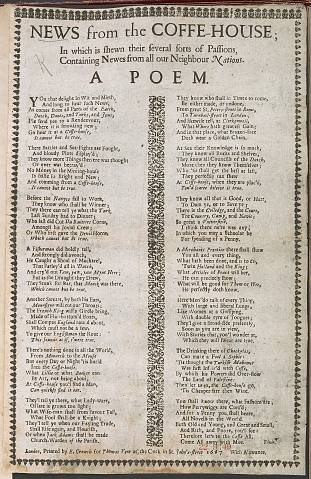 NEWS from the COFFE-HOUSE;
In which is shewn their several sorts of Passions,
Containing Newes from all our Neighbour Nations.
A POEM.
You that delight in Wit and Mirth,
And long to hear such News,
As comes from all Parts of the Earth,
Dutch, Danes, and Turks, and Jews,
I'le send yee to a Rendezvouz,
Where it is smoaking new;
Go hear it at a Coffe-house,
It cannot but be true.
There Battles and Sea-Fights are Fought,
And bloody Plots display'd;
They know more Things then ere was thought
Or ever was betray'd:
No Money in the Minting-house
Is halfe so Bright and New;
And comming from a Coffe-house,
It cannot but be true.
Before the Navyes fall to Work,
They know who shall be Winner;
They there can tell ye what the Turk
Last Sunday had to Dinner;
Amongst his jovial Crew;
Or Who first gave the
Which cannot but be true.
A Fisherman did boldly tell,
And strongly did avouch,
He Caught a Shoal of Mackarel,
That Parley'd all in Dutch,
And cry'd out Yaw, yaw, yaw
But as the Draught they Drew
They Stunck for fear, that Monck was there,
Which cannot but be true.
Another Swears, by both his Ears,
Mounsieur will cut our Throats;
The French King will a Girdle bring,
Made of
Shall Compas England round about,
Which must not be a few,
To give our Englishmen the Rout;
This sounds as if 'twere true.
There's nothing done in all the World,
From Monarch to the Mouse
But every Day or Night 'tis hurld
Into the Coffe-house.
What
By Art, not bring about,
At Coffe-house you'l find a Man,
Can quickly find it out.
They'l tell ye there, what Lady-ware,
Of late is grown too light;
What Wise-man shall from favour Fall,
What Fool shall be a Knight;
They'l tell ye when our Fayling Trade,
Shall Rise again, and Flourish,
Or when Jack Adams shall be made
Church-Warden of the Parish.
They know who shall in Times to come,
Be either made, or undone,
From great St. Peters-street in Rome,
To Turnbull-street in London;
And likewise tell, at Clerkenwell,
What Whore hath greatest Gain;
And in that place, what Brazen-face
Doth wear a Golden Chain.
At Sea their Knowledge is so much,
They know all Rocks and Shelves,
They know all Councils of the Dutch,
More then they know Themselves;
Who 'tis shall get the best at last,
They perfectly can shew
At Coffe-house, when they are plac'd,
You'd scarce believe it true.
They know all that is Good, or Hurt,
To Dam ye, or to Save ye;
There is the Colledge, and the Court,
The Country, Camp, and Navie;
So great a Universitie,
I think there ne're was any;
In which you may a Scholler be
For spending of a Penny.
A Merchants Prentice there shall show
You all and every thing,
What hath been done, and is to do,
'Twixt Holland and the King;
What Articles of Peace will bee,
He can precisely show;
What will be good for Them or Wee,
He perfectly doth know.
Here Men do talk of every Thing,
With large and liberal Lungs,
Like Women at a Gossiping,
With double tyre of tongues;
They'l give a Broad-side presently,
Soon as you are in view,
With Stories that, you'l wonder at,
Which they will swear are true.
The Drinking there of Chockalat,
Can make a Fool a Sophie:
'Tis thought the Turkish Mahomet
Was first Inspir'd with Coffe,
By which his Powers did Over-flow
The Land of Palestine:
Then let us to, the Coffe-house go,
'Tis Cheaper farr then Wine.
You shall know there, what Fashions are;
How Perrywiggs are Curl'd;
And for a Penny you shall heare,
All Novells in the World.
Both Old and Young, and Great and Small,
And Rich, and Poore, you'll see;
Therefore let's to the Coffe All,
Come All away with Mee.
Finis.
London, Printed by E. Crowch for Thomas Vere at the Cock in St. John's-street 1667 With Allowance.